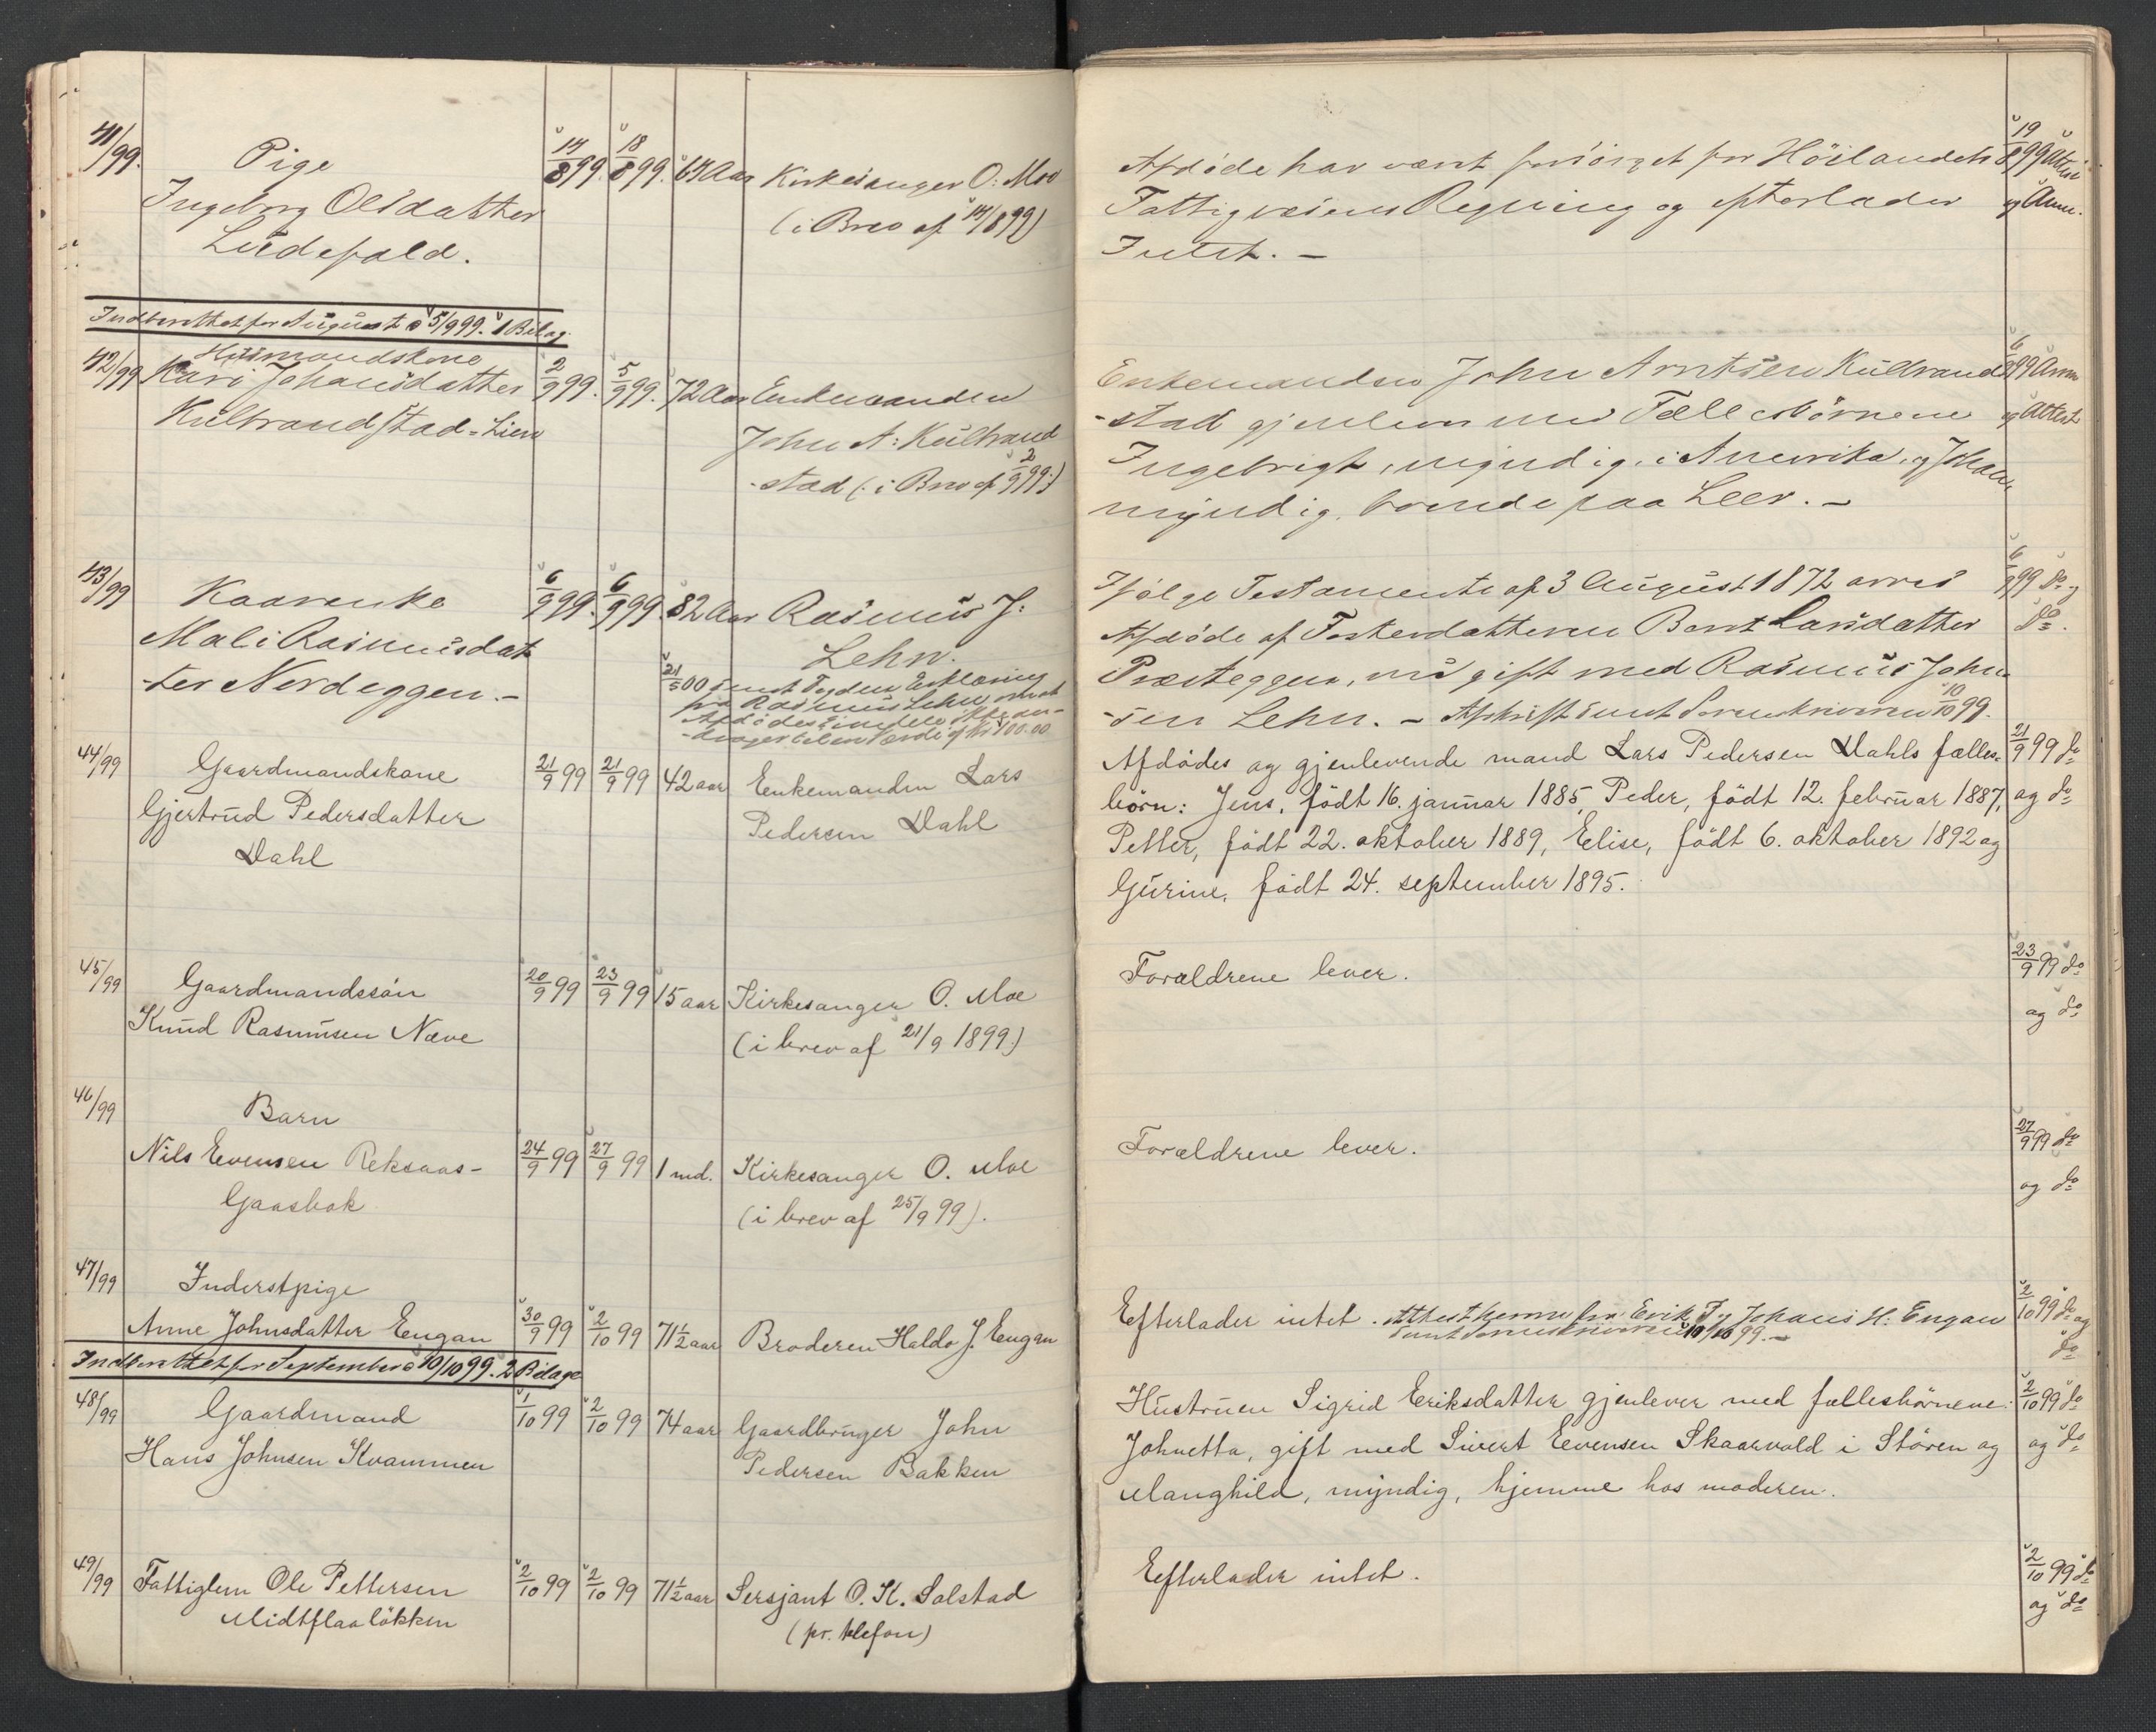 41/99.
Pige
Ingeborg Olsdatter
Lidefald.
14/8 99. 18/8 99. 64 Aar Kirkesanger O: Moe
(i Brev af 14/8 99)
Afdøde har været forsørget for Höilandets
Fattigvæsens Regning og efterlader
Intet. –
19/8 99 Attest
og Anm.
Indberettet for August d 5/9 99. 1 Bilag.
42/99
Husmandskone
Kari Johansdatter
Kulbrandstad-Lien
2/9 99. 5/9 99. 72 Aar Enkemanden
John A: Kulbrand
-stad (: i Brev af 2/9 99:)
Enkemanden John Arntsen Kulbrand
-stad gjenlever med Fællesbörnene
Ingebrigt, myndig, i Amerika, og Johan,
myndig, boende paa Leer. –
6/9 99 Anm
og Attest
43/99
Kaarenke
Mali Rasmusdat
-ter Nordeggen. –
6/9 99. 6/9 99 82 Aar Rasmus J:
Lehn.
21/5 00 sendt Erklæring
fra Rasmus Lehn om at
Afdødes
til en Værdi af Kr 100.00
Ifølge Testamente af 3 August 1872 arves
Afdøde af Fosterdatteren Berit Larsdatter
Præsteggen, nu gift med Rasmus John
-sen Lehn. – Afskrift sendt Sorenskriveren 10/10 99.
6/9 99 Do og
Do.
44/99
Gaardmandskone
Gjertrud Pedersdatter
Dahl
21/9 99 21/9 99 42 aar Enkemanden Lars
Pedersen Dahl
Afdødes og gjenlevende mand Lars Pedersen Dahls fælles-
börn: Jens, födt 16. januar 1885, Peder, födt 12. februar 1887,
Petter, födt 22. oktober 1889, Elise, födt 6. oktober 1892 og
Gurine, födt 24. september 1895.
21/9 99 do
og do
45/99
Gaardmandssön
Knud Rasmusen Næve
20/9 99 23/9 99 15 aar Kirkesanger O. Moe
(i brev af 21/9 1899.)
Forældrene lever.
23/9 99 do
og do
46/99
Barn
Nils Evensen Reksaas-
Gaasbak
24/9 99 27/9 99 1 md. Kirkesanger O. Moe
(i brev af 25/9 99).
Forældrene lever.
27/9 99 do
og do
47/99
Inderstpige
Anne Johnsdatter Engan
30/9 99 2/10 99 71½ aar Broderen Haldo J. Engan
Efterlader intet. Attest herom fra Erik og Johans H: Engan
sendt Sorenskriveren 10/10 99. –
2/10 99 do og
do
Indberettet for September d 10/10 99. 2 Bilage
48/99
Gaardmand
Hans Johnsen Kvammen
1/10 99 2/10 99 74 aar Gaardbruger John
Pedersen Bakken
Hustruen Sigrid Eriksdatter gjenlever med fællesbörnene:
Johnetta, gift med Sivert Evensen Skaarvold i Stören og
Manghild, myndig, hjemme hos moderen.
2/10 99 do
og do
49/99
Fattiglem Ole Pettersen
Midtflaalökken
2/10 99 2/10 99 71½ aar Sersjant O. K. Solstad
(pr. telefon)
Efterlader intet.
2/10 99 do
og do